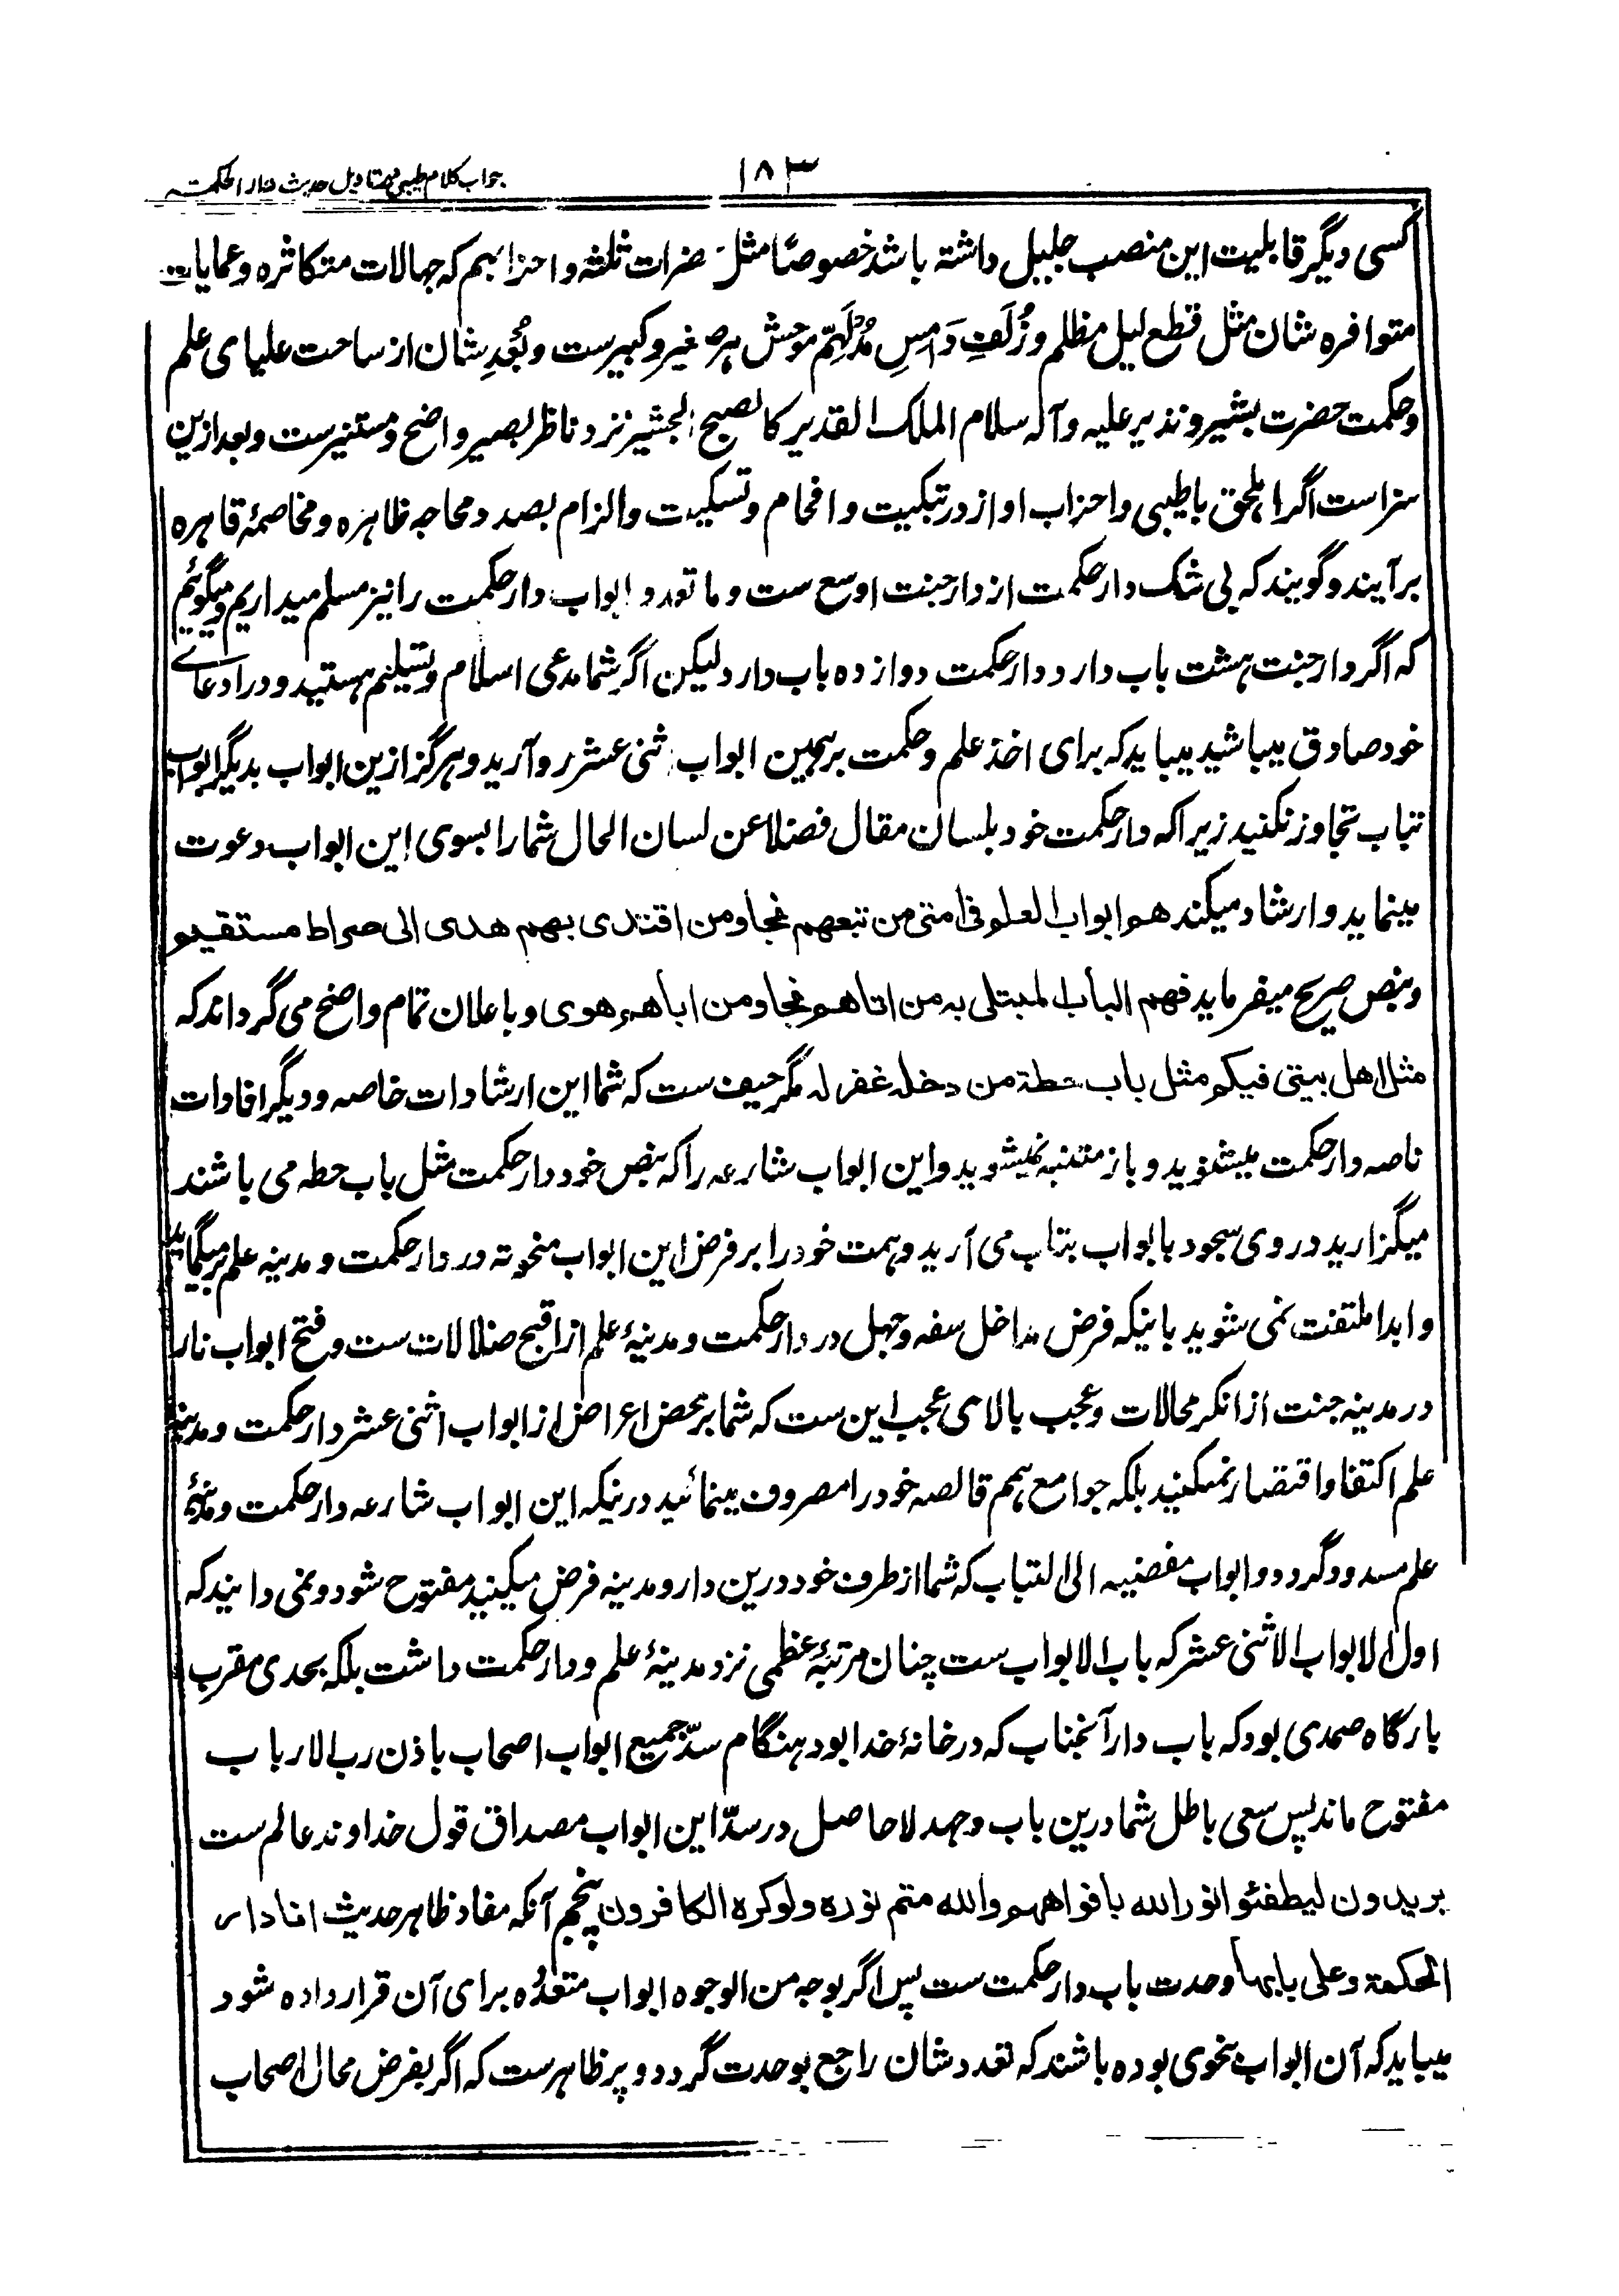 ۱۸۳
جواب کلام طیبی متعلق بذیل حدیث انا دار الحکمة
کسی دیگر قابلیت این منصب جلیل داشته باشد خصوصًا مثل حضرات ثلثه و احزابهم که جهالات متکاثره و عمایات
متوافره شان مثل قطع لیل مظلم و زُلَفِ دَامِسِ مُدْلَهِمّ موحش هر صغیر و کبیرست و بُعدِ شان از ساحت علیای علم
و حکمت حضرت بشیر و نذیر علیه و آله سلام الملک القدیر کالصبح الجشیر نزد ناظر بصیر واضح و مستنیرست و بعد ازین
سزاست اگر اهلحق با طیبی و احزاب او از در تبکیت و افحام و تسکیت و الزام بصدد محاجه ظاهره و مخاصمهٔ قاهره
برآیند و گویند که بی شک دار حکمت از دار جنت اوسع ست و ما تعدد ابواب دار حکمت را نیز مسلم میداریم و میگوئیم
که اگر دار جنت هشت باب دارد دار حکمت دوازده باب دارد لیکن اگر شما مدعی اسلام و تسلیم هستید و در ادعاے
خود صادق میباشید میباید که برای اخذ علم و حکمت بر همین ابواب اثنی عشر رو آرید و هرگز ازین ابواب بدیگر ابواب
تباب تجاوز نکنید زیرا که دار حکمت خود بلسان مقال فضلا عن لسان الحال شما را بسوی این ابواب دعوت
مینماید و ارشاد میکند هم ابواب العلم فی امتی من تبعهم نجا و من اقتدی بهم هدی الی صراط مستقیم
و بنص صریح میفرماید فهم الباب المبتلی به من اتاهم نجا و من اباهم هوی و باعلان تمام واضح می گرداند که
مثل اهل بیتی فیکم مثل باب حطة من دخله غفر له مگر حیف ست که شما این ارشادات خاصه و دیگر افادات
ناصه دار حکمت میشنوید و باز متنبه نمیشوید و این ابواب شارعه را که بنص خود دار حکمت مثل باب حطه می باشند
میگزارید و روی سجود بابواب بتاب می آرید و همت خود را بر فرض این ابواب منحوته در دار حکمت و مدینه علم میگمارید
و ابدا ملتفت نمی شوید باینکه فرض مداخل سفه و جهل در دار حکمت و مدینهٔ علم از اقبح ضلالات ست و فتح ابواب نار
در مدینه جنت از انکر محالات و عجب بالای عجب این ست که شما بر محض اعراض از ابواب اثنی عشر دار حکمت و مدینه
علم اکتفا و اقتصار نمیکنید بلکه جوامع همم قالصه خود را مصروف مینمائید درینکه این ابواب شارعه دار حکمت و مدینهٔ
علم مسدود گردد و ابواب مفضیه الی التباب که شما از طرف خود درین دار و مدینه فرض میکنید مفتوح شود و نمی دانید که
اول الابواب الاثنی عشر که باب الابواب ست چنان مرتبهٔ عظمی نزد مدینهٔ علم و دار حکمت داشت بلکه بحدی مقرب
بارگاه صمدی بود که باب دار آنجناب که در خانهٔ خدا بود هنگام سدّ جمیع ابواب اصحاب باذن رب الارباب
مفتوح ماند پس سعی باطل شما درین باب و جهد لا حاصل در سدّ این ابواب مصداق قول خداوند عالم ست
یریدون لیطفئوا نور الله بافواههم والله متم نوره ولو کره الکافرون پنجم آنکه مفاد ظاهر حدیث انا دار
الحکمة و علی بابها وحدت باب دار حکمت ست پس اگر بوجه من الوجوه ابواب متعدّده برای آن قرار داده شود
میباید که آن ابواب بنحوی بوده باشند که تعدد شان راجع بوحدت گردد و پر ظاهرست که اگر بفرض محال اصحاب